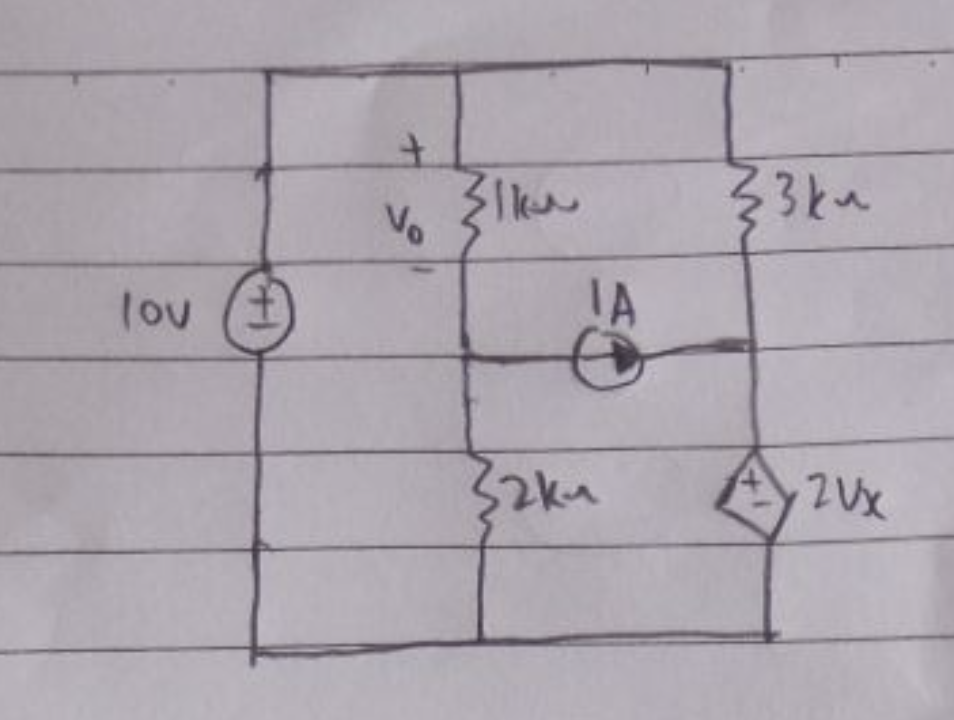 +
1kΩ
3kΩ
V₀
-
1A
10V
+
-
2kΩ
+
-
2Vx